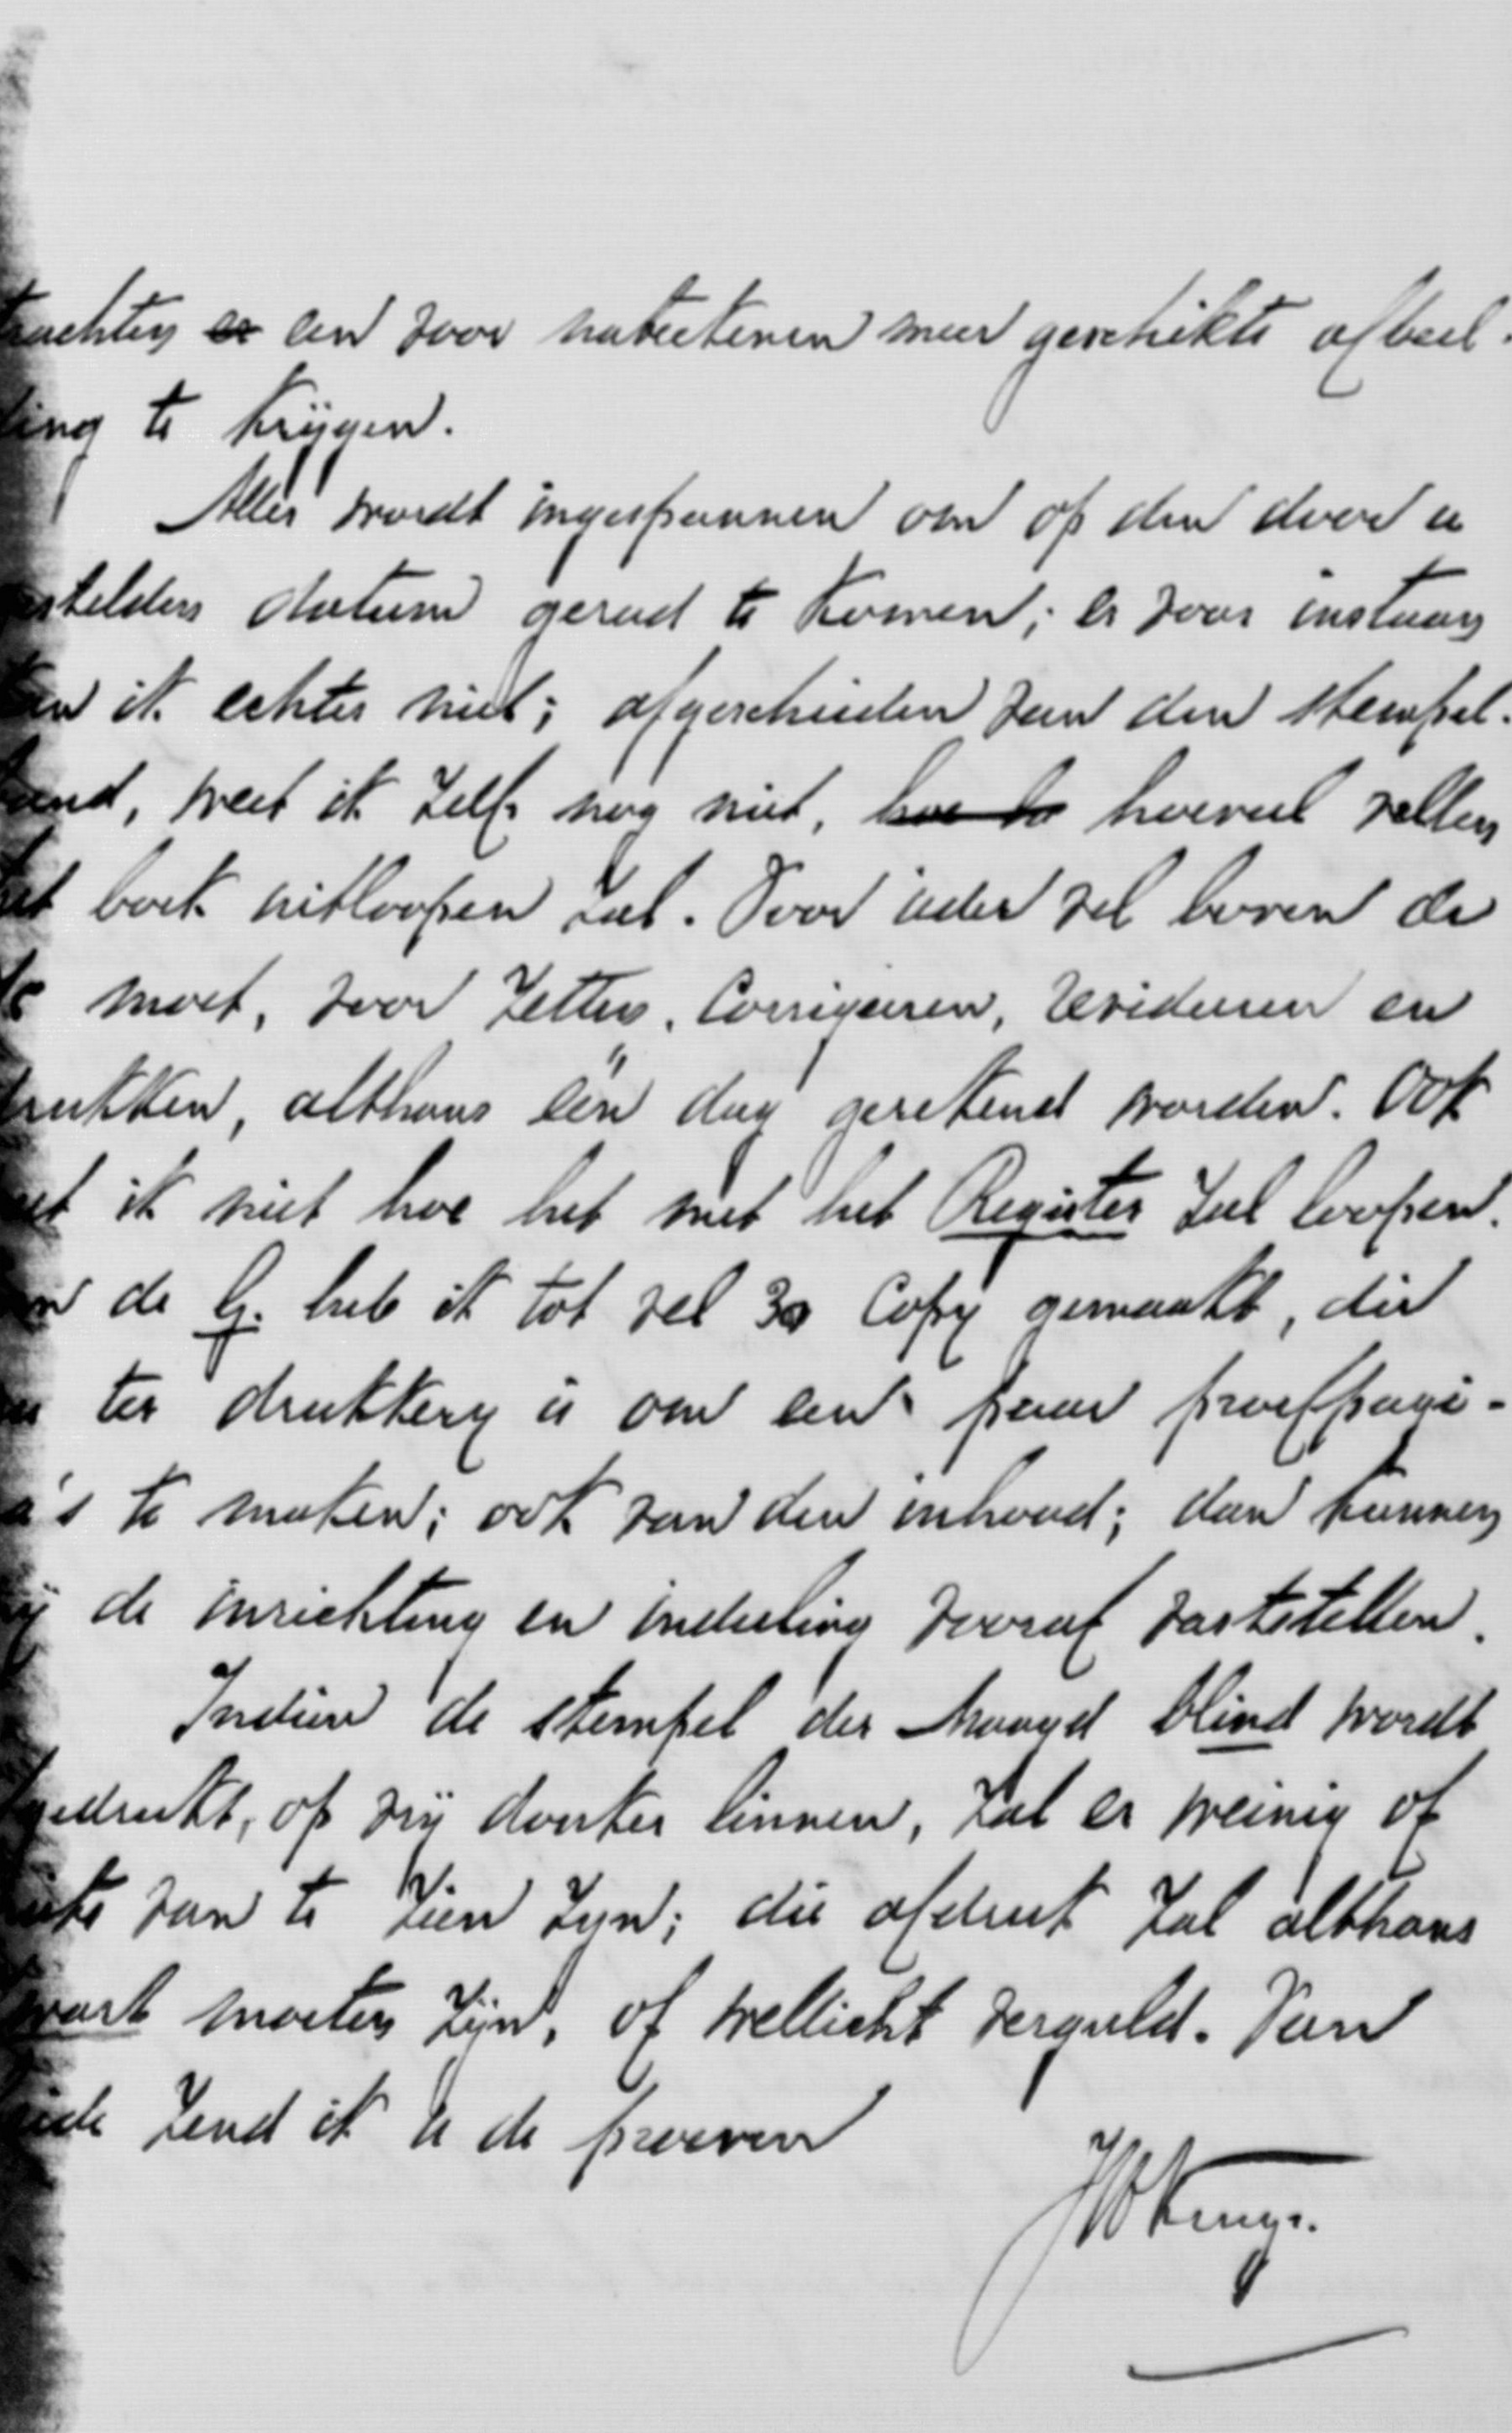 trachten een voor nateekenen meer geschikte afbeel-
ding te krijgen.
Alles wordt ingespannen om op den door u
gestelden datum gereed te komen; er voor instaan
kan ik echter niet; afgescheiden van den stempel-
band, weet ik zelf nog niet, hoeveel vellen
het boek uitloopen zal. Voor ieder vel boven de
moet, voor zetten, corrigeeren, revideeren en
drukken, althans één dag gerekend worden. Ook
weet ik niet hoe het met het Register zal loopen.
de G. heb ik tot vel 30 copy gemaakt, die
nu ter drukkery is om een paar proefpagi-
na's te maken; ook van den inhoud; dan kunnen
wij de inrichting en indeeling vooraf vaststellen.
Indien de stempel der Maagd blind wordt
gedrukt, op vrij donker linnen, zal er weinig of
niets van te zien zyn; die afdruk zal althans
zwart moeten zijn, of wellicht verguld. Van
beide zend ik u de proeven